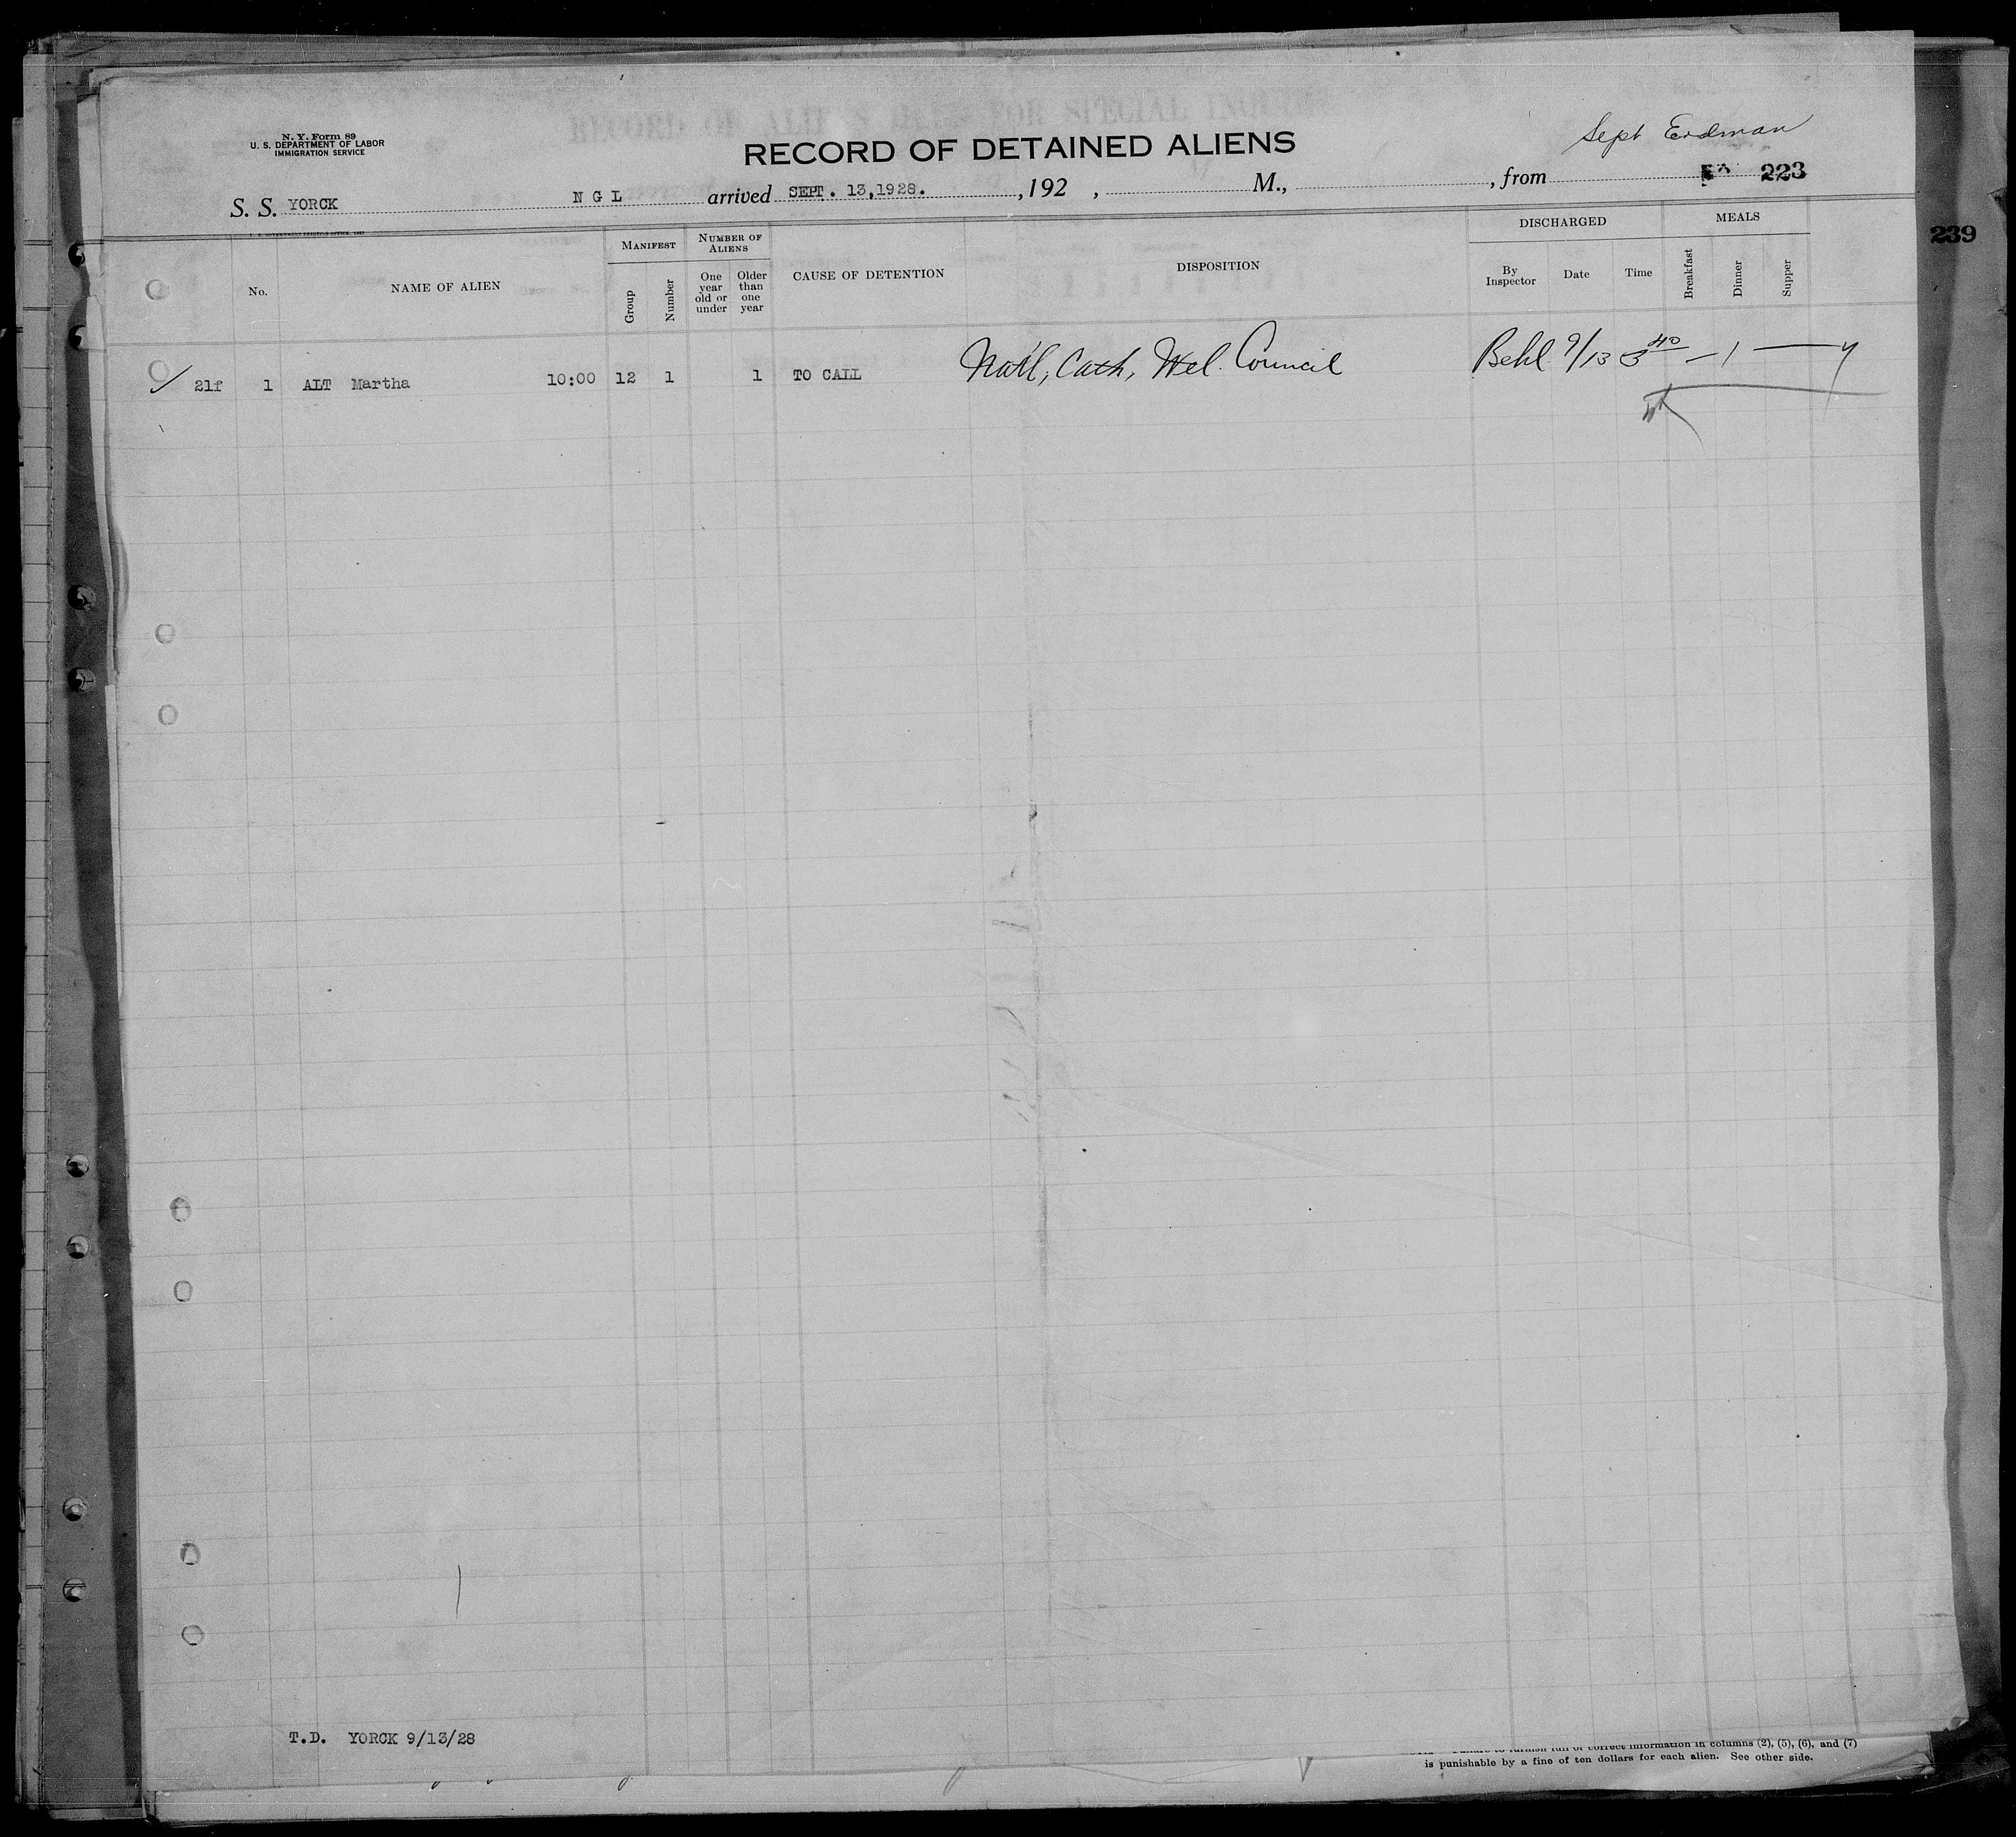 N. Y. Form 89
U. S. DEPARTMENT OF LABOR
IMMIGRATION SERVICE
RECORD OF ALIENS HELD FOR SPECIAL INQUIRY
RECORD OF DETAINED ALIENS
Sept Erdman
223
S. S. YORCK N G L arrived SEPT. 13,1928. , 192 , M., , from
239
No.
NAME OF ALIEN
MANIFEST
Group
Number
NUMBER OF ALIENS
One year old or under
Older than one year
CAUSE OF DETENTION
DISPOSITION
DISCHARGED
By Inspector
Date
Time
MEALS
Breakfast
Dinner
Supper
21f 1 ALT Martha 10:00 12 1 1 TO CALL Nat'l, Cath, Wel. Council Behl 9/13 3 40 — 1 —
T.D. YORCK 9/13/28
correct information in columns (2), (5), (6), and (7)
is punishable by a fine of ten dollars for each alien. See other side.